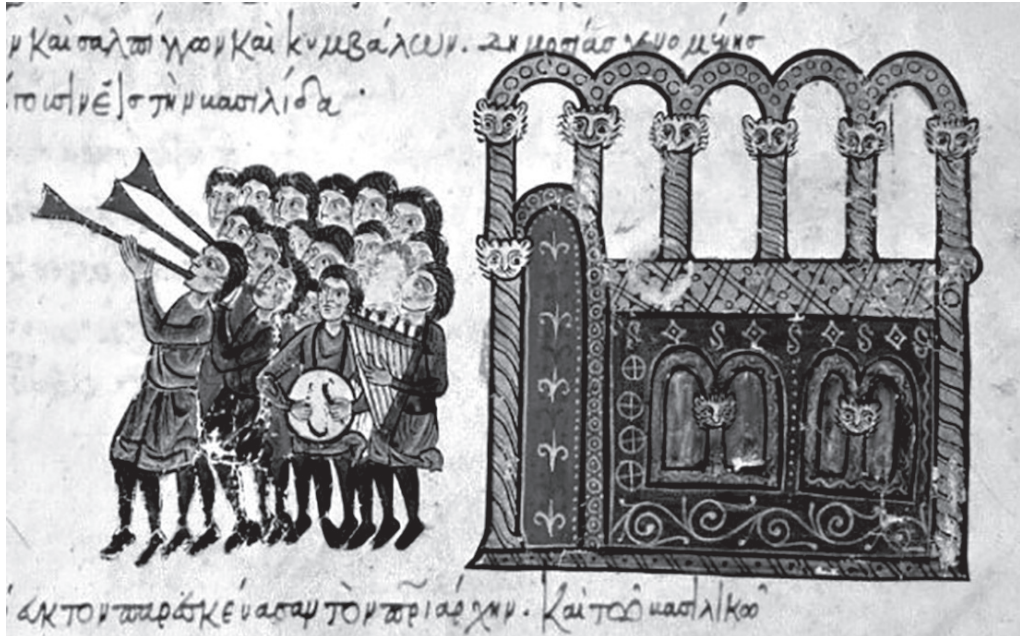 ν καὶ σαλπίγγων καὶ κυμβάλων. δημοσίας γενομένης
εἰς τὴν βασιλίδα·
ακτον παρασκευασαν τὸν πριάρχην. Καὶ τοῦ βασιλικοῦ